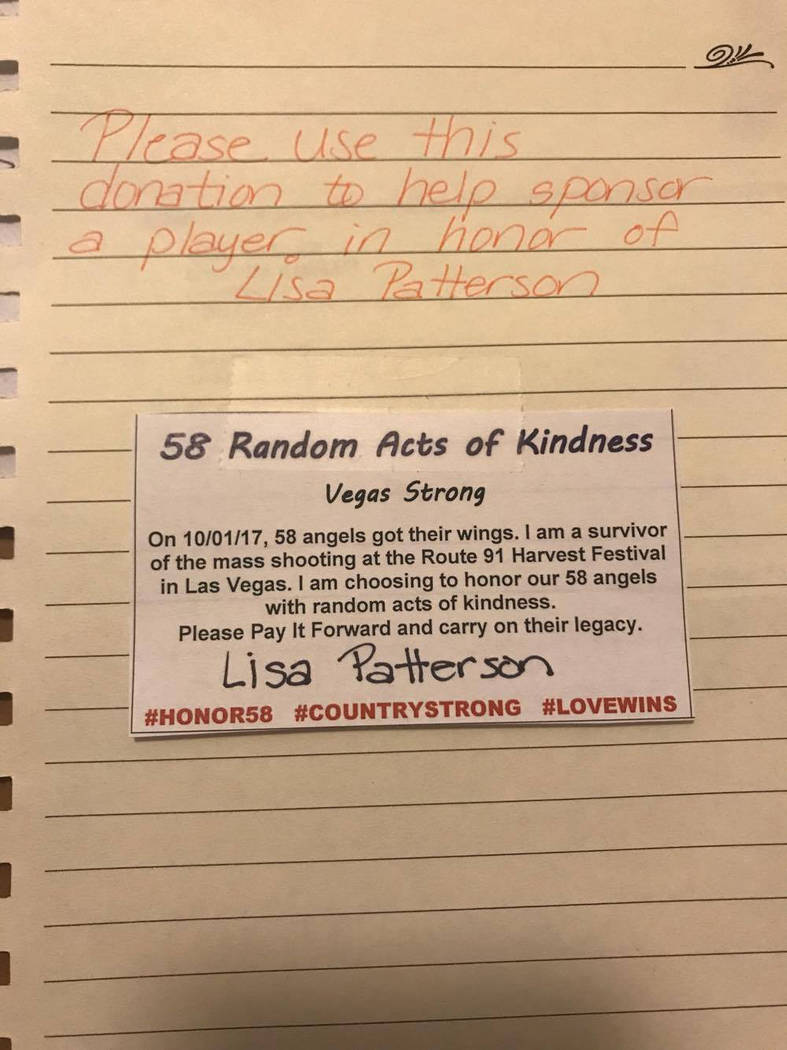 Please use this
donation to help sponsor
a player. in honor of
Lisa Patterson
58 Random Acts of Kindness
Vegas Strong
On 10/01/17, 58 angels got their wings. I am a survivor
of the mass shooting at the Route 91 Harvest Festival
in Las Vegas. I am choosing to honor our 58 angels
with random acts of kindness.
Please Pay It Forward and carry on their legacy.
Lisa Patterson
#HONOR58 #COUNTRYSTRONG #LOVEWINS